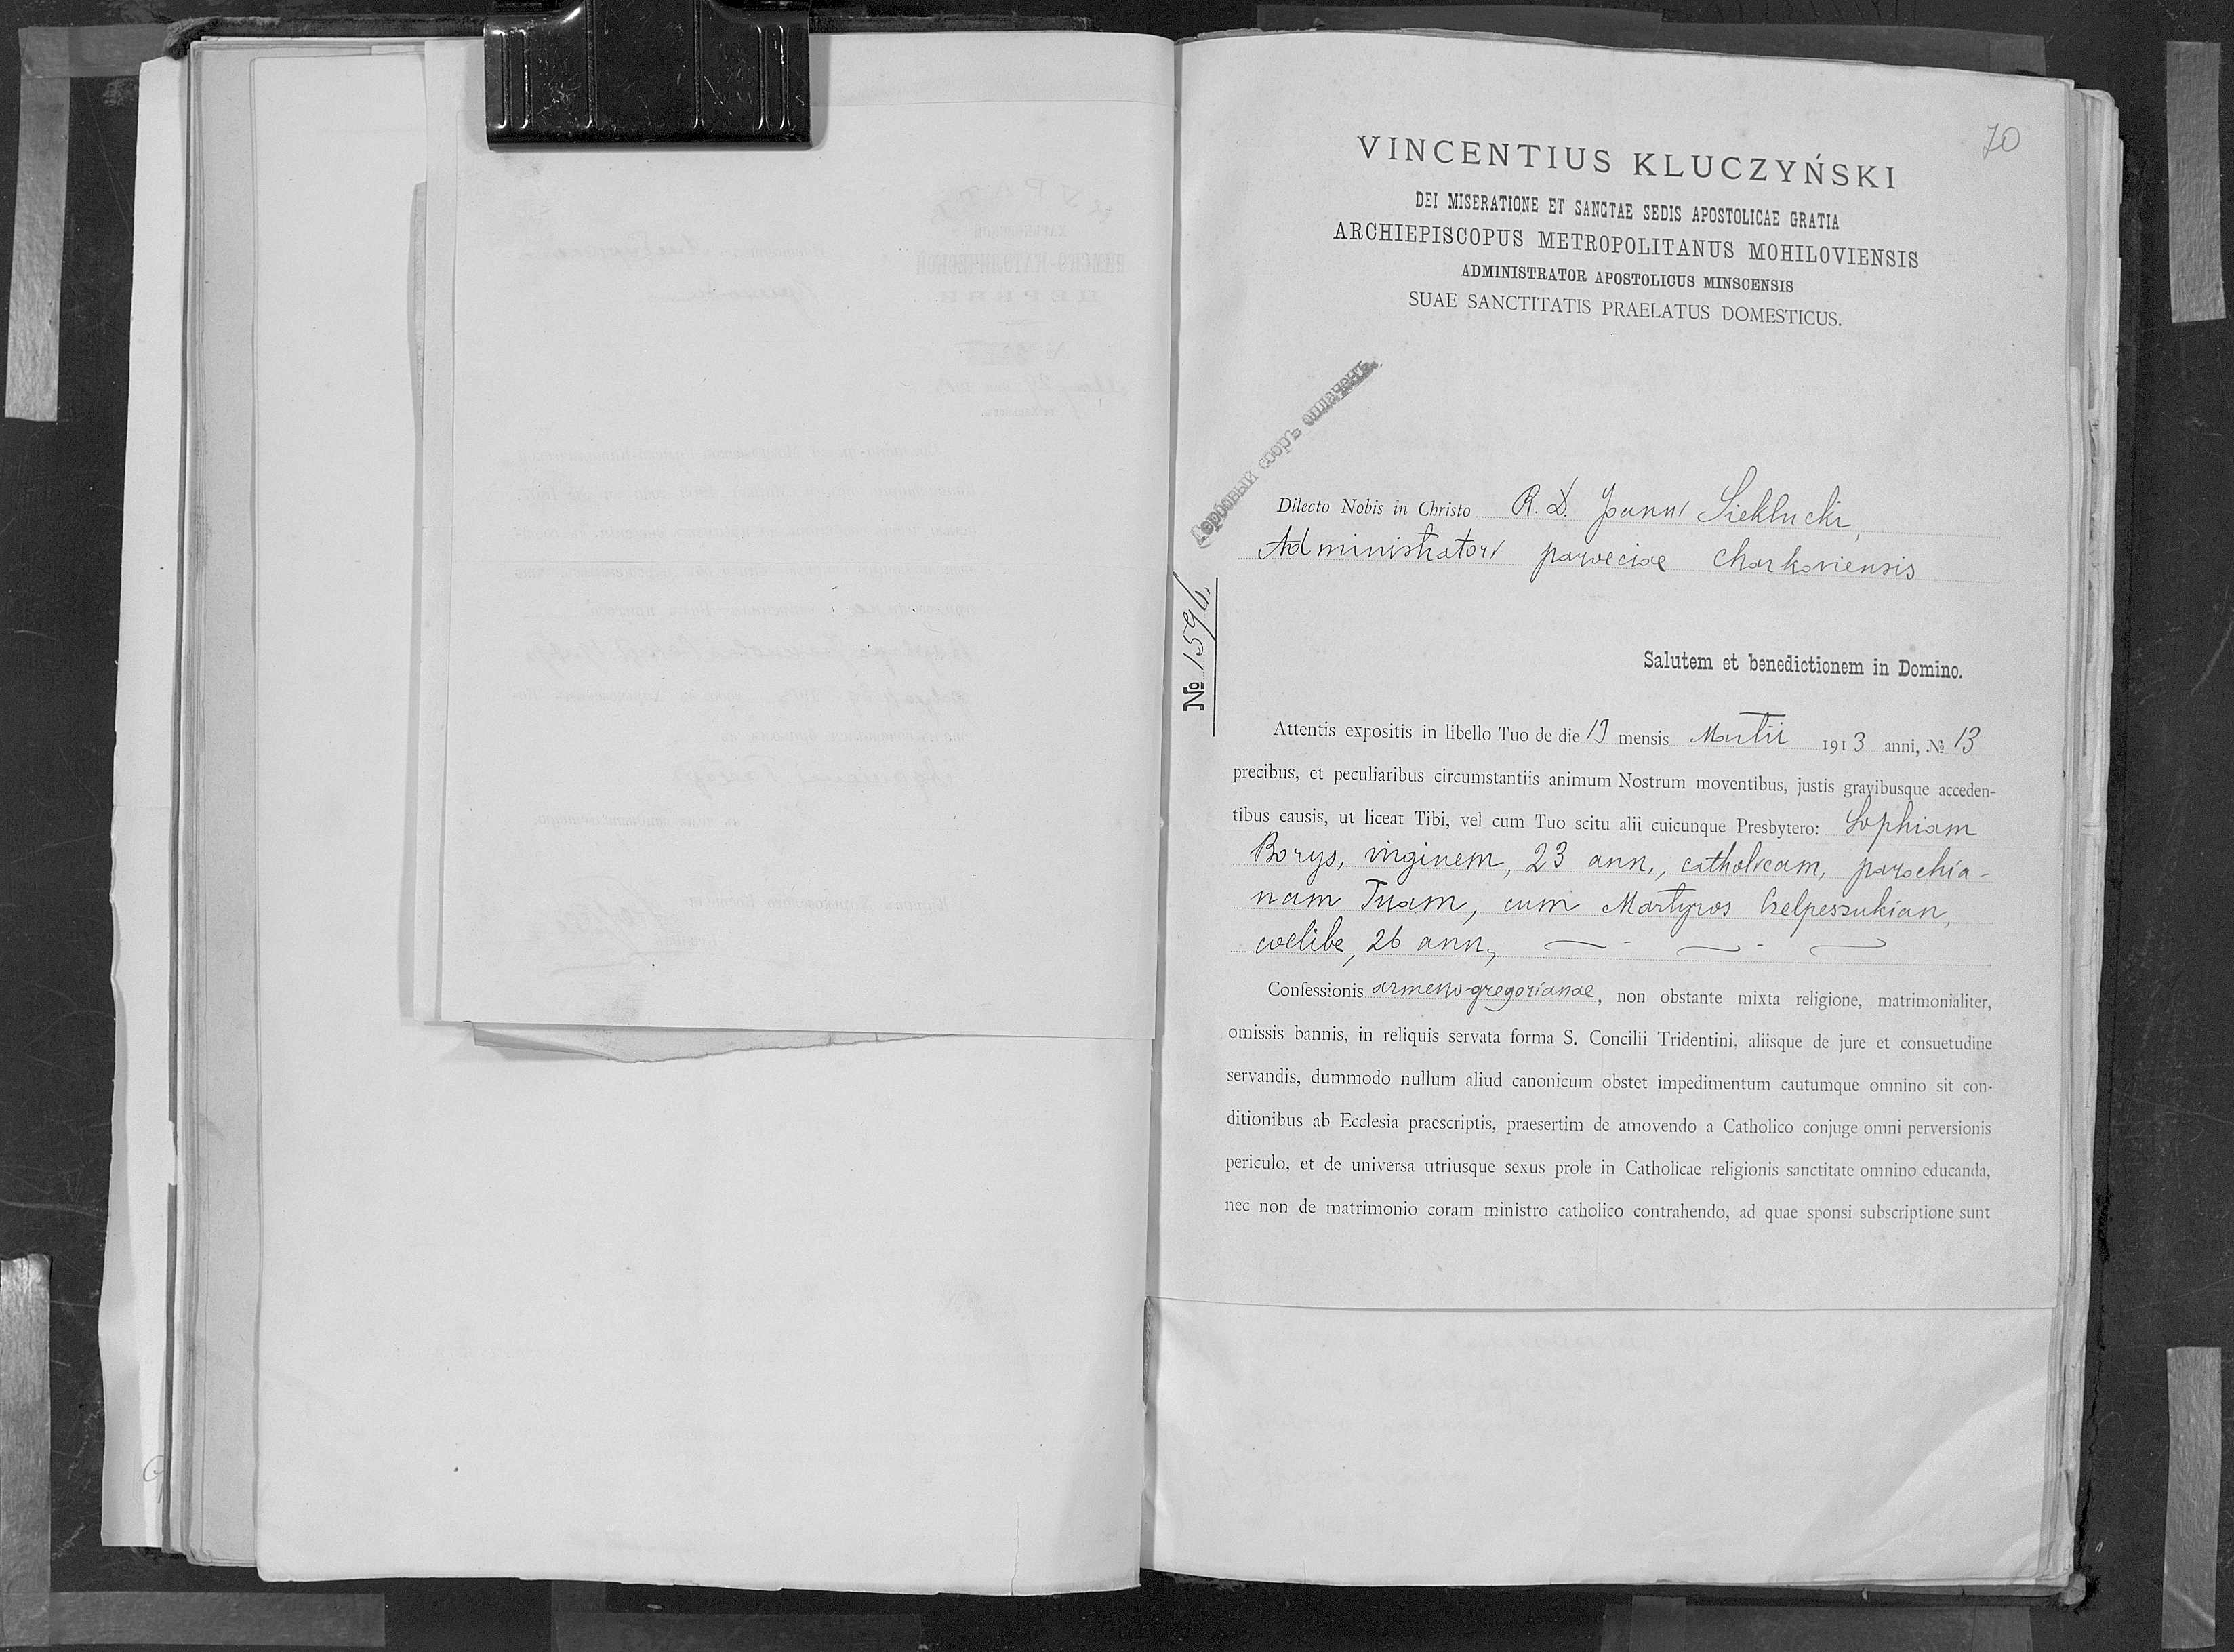 70
VINCENTIUS KLUCZYŃSKI
DEI MISERATIONE ET SANCTAE SEDIS APOSTOLICAE GRATIA
ARCHIEPISCOPUS METROPOLITANUS MOHILOVIENSIS
ADMINISTRATOR APOSTOLICUS MINSCENSIS
SUAE SANCTITATIS PRAELATUS DOMESTICUS.
Гербовый сборъ оплаченъ.
Dilecto Nobis in Christo R. D. Joanni Siekłucki,
Administratori paroeciae Charkoviensis
№ 1596.
Salutem et benedictionem in Domino.
Attentis expositis in libello Tuo de die 19 mensis Martii 1913 anni, № 13
precibus, et peculiaribus circumstantiis animum Nostrum moventibus, justis gravibusque acceden-
tibus causis, ut liceat Tibi, vel cum Tuo scitu alii cuicunque Presbytero: Sophiam
Borys, virginem, 23 ann., catholicam, parochia-
nam Tuam, cum Martyros Czelpeszukian,
coelibe, 26 ann.,
Confessionis armeno-gregorianae, non obstante mixta religione, matrimonialiter,
omissis bannis, in reliquis servata forma S. Concilii Tridentini, aliisque de jure et consuetudine
servandis, dummodo nullum aliud canonicum obstet impedimentum cautumque omnino sit con-
ditionibus ab Ecclesia praescriptis, praesertim de amovendo a Catholico conjuge omni perversionis
periculo, et de universa utriusque sexus prole in Catholicae religionis sanctitate omnino educanda,
nec non de matrimonio coram ministro catholico contrahendo, ad quae sponsi subscriptione sunt